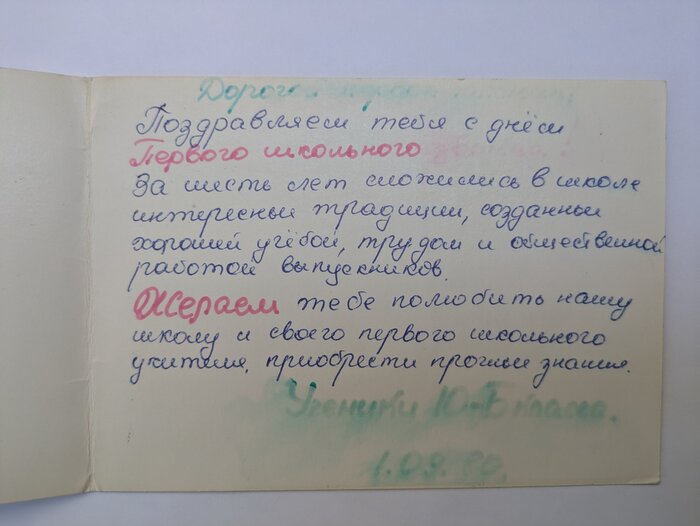 Дорогой
Поздравляем тебя с днём
Первого школьного звонка!
За шесть лет сложились в школе
интересные традиции, созданные
хорошей учёбой, трудом и общественной
работой выпускников.
Желаем тебе полюбить нашу
школу и своего первого школьного
учителя, приобрести прочные знания.
Ученики 10-Б класса.